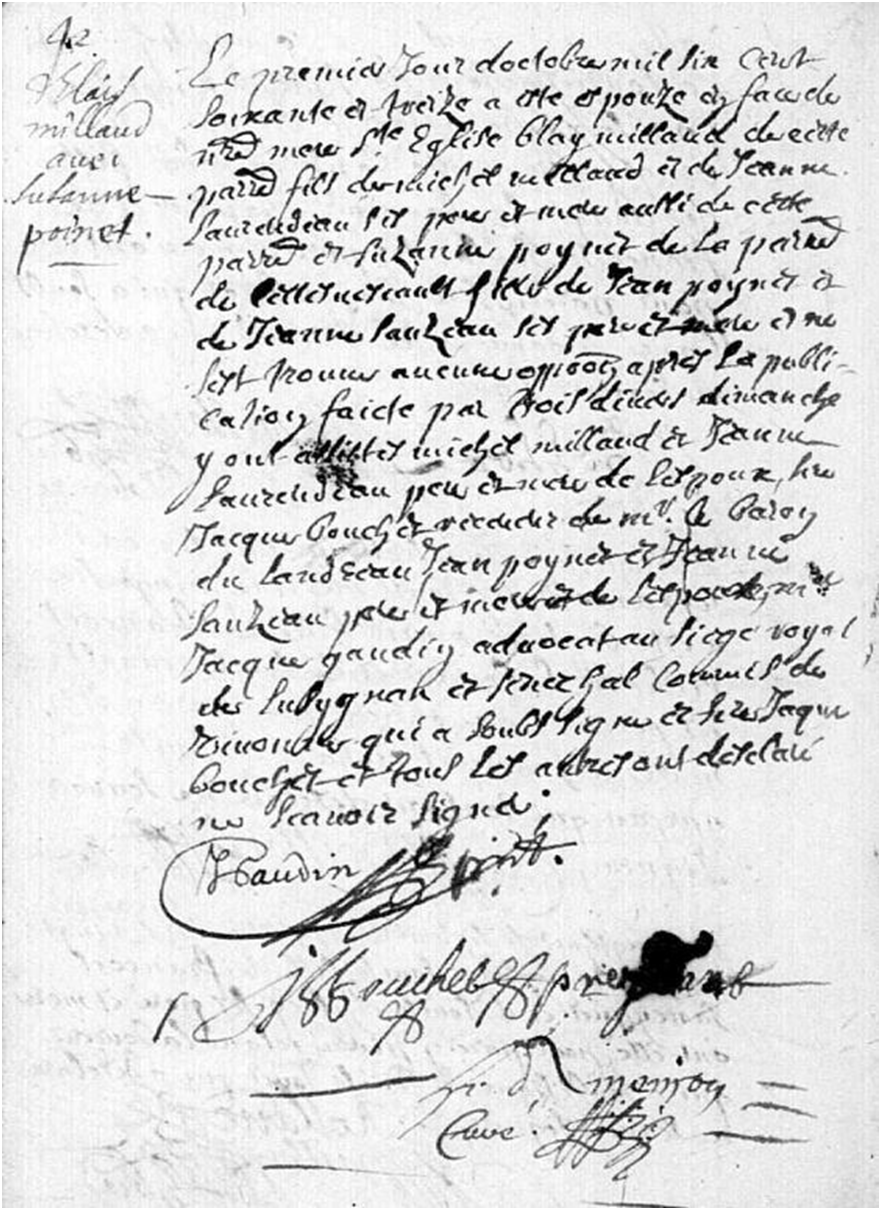 42
Blays
millaud
avec
suzanne
poinet.
Le premier Jour doctobre mil six cent
soixante et treize a este espouze en face de
nre mere ste Eglise blay millaud de cette
parre fils de michel millaud et de Jeanne
laurendeau ses pere et mere aussi de cette
parre et suzanne poynet de la parre
de fille de Jean poynet et
de Jeanne sauzeau ses pere et mere et ne
sest trouve aucune opposon apres la publi-
cation faicte par trois divers dimanche
y ont assistes michel millaud et Jeanne
laurendeau pere et mere de lespoux, sire
Jacque bouchet de mr. le baron
du landreau Jean poynet et Jeanne
sauzeau pere et mere de lespouze, mre
Jacque gaudin advocat au siege royal
de lusygnan et senechal commis de
qui a soubs signe et sire Jaque
bouchet et tous les autres ont desclare
ne scavoir signer.
JGaudin pnt.
JBouchet present
cure